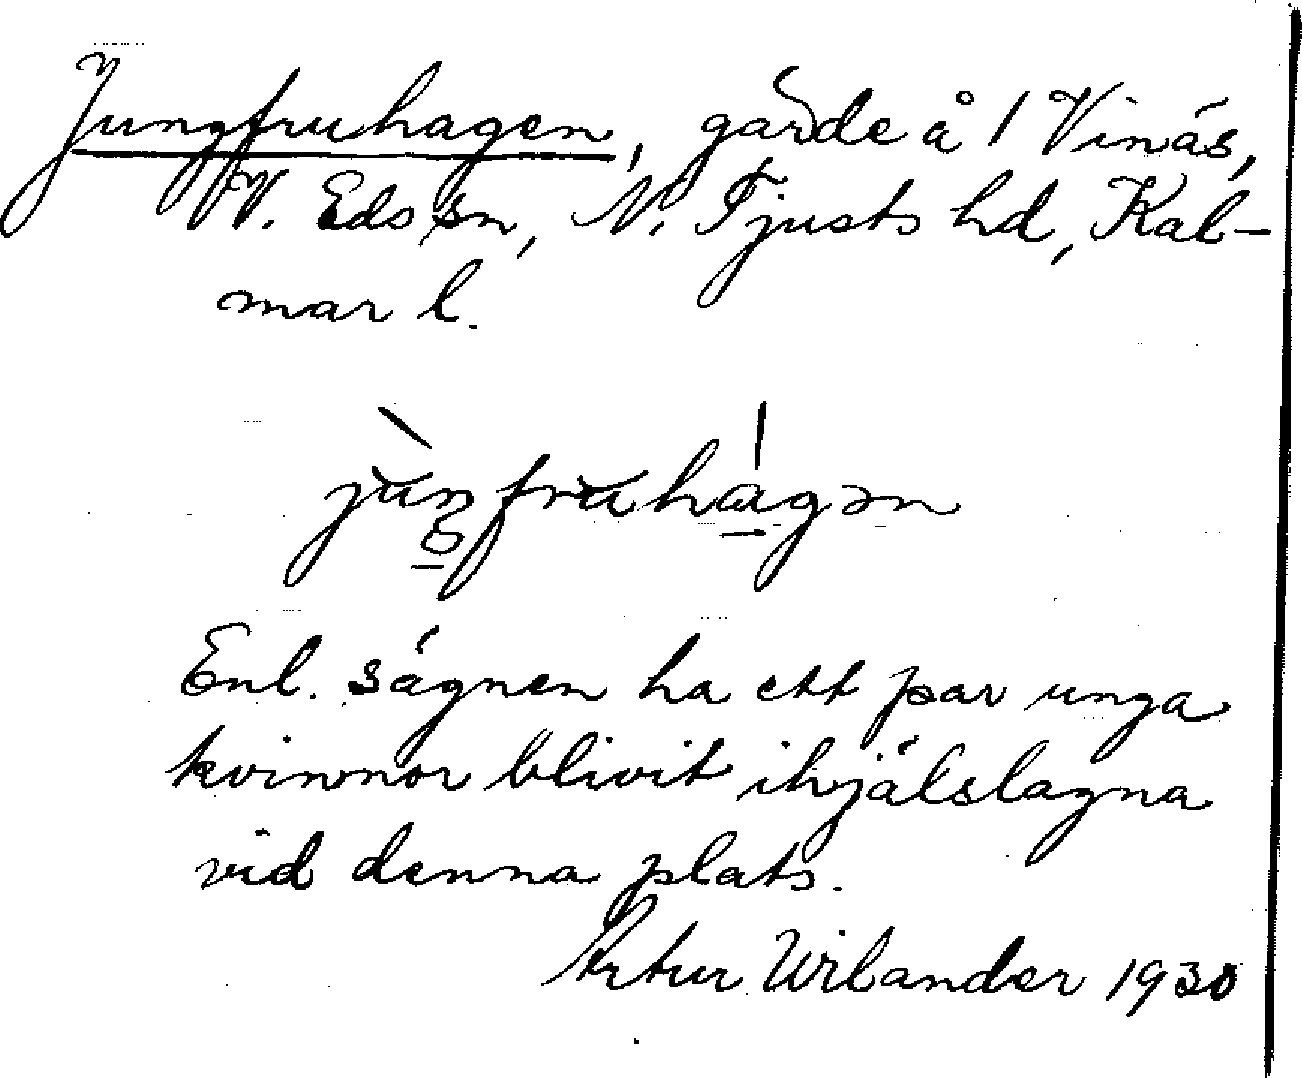 Jungfruhagen, gärde å 1 Vinäs,
V. Eds sn, N. Tjusts hd, Kal-
mar l.
juŋfruhagən
Enl. sägnen ha ett par unga
kvinnor blivit ihjälslagna
vid denna plats.
Artur Wilander 1930